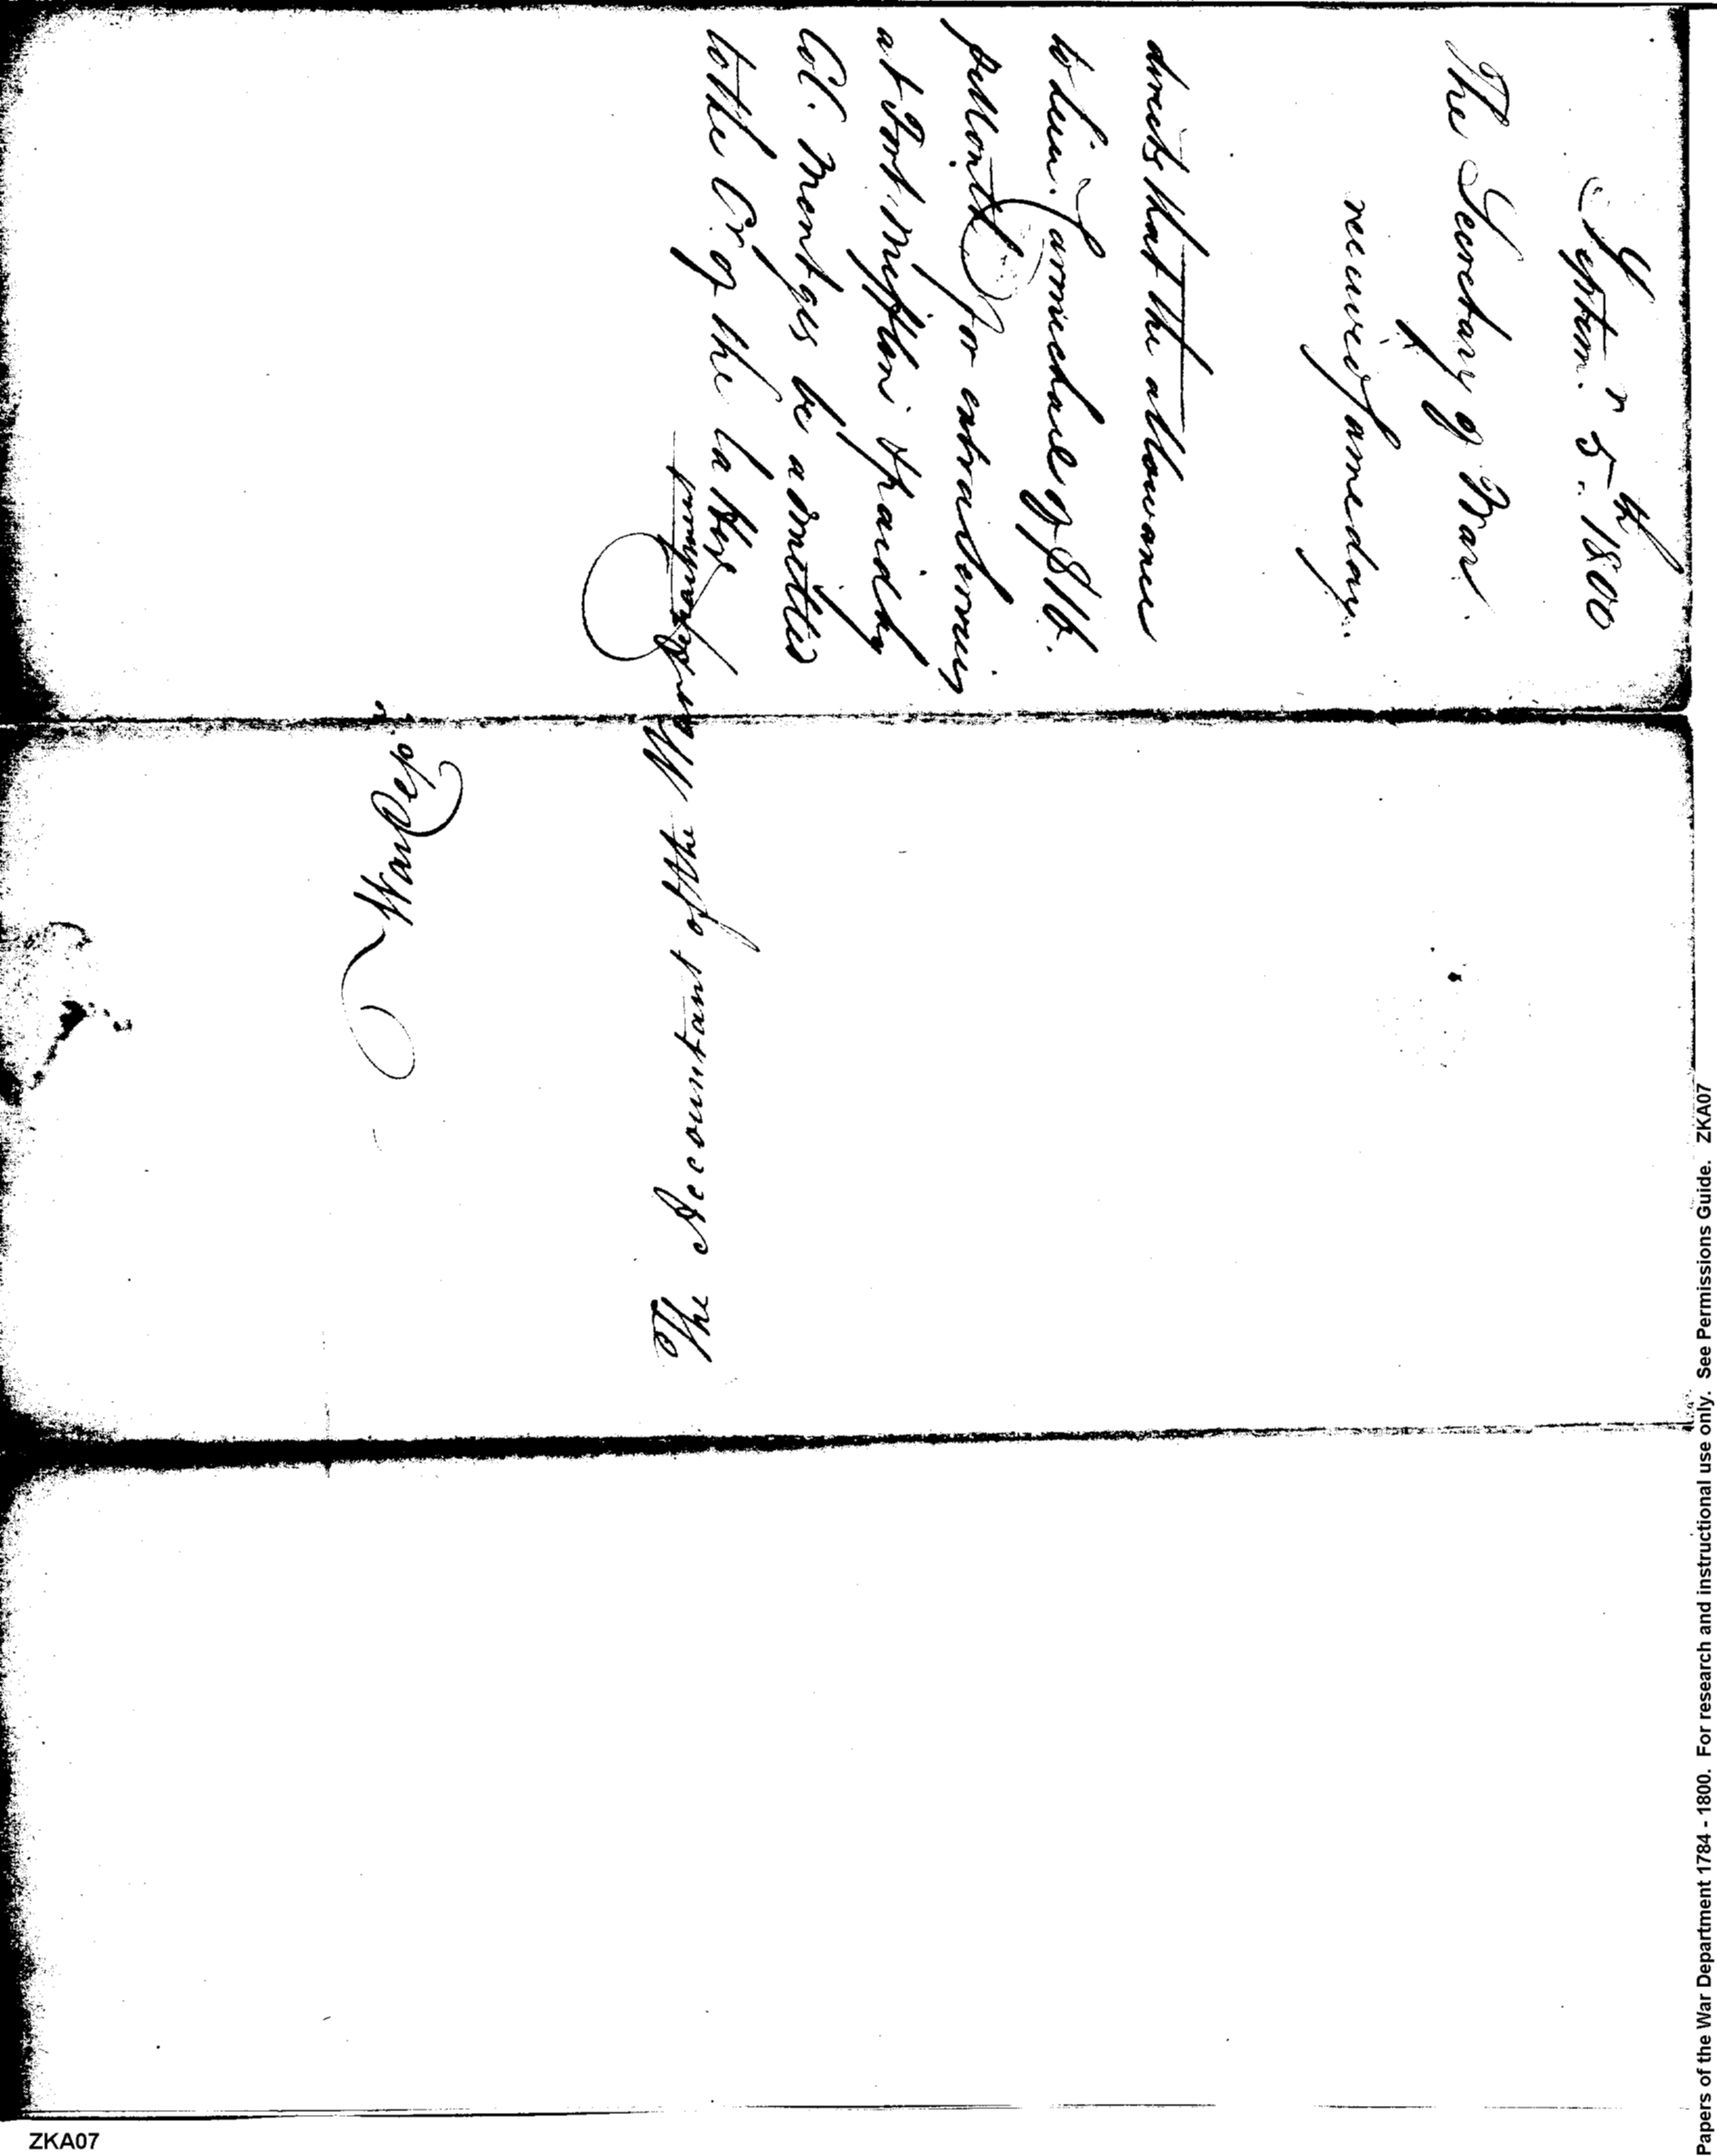 Septem.r 5th 1800
The Secretary of War
received same day.
directs that the allowance
to Lieu. Carmichael of $16.
pr Month for extra services
at Fort Mifflin & paid by
Col. Mentges be admitted
to the Cr of the latter
The Accountant of the War Department
War Dep.
Papers of the War Department 1784 - 1800. For research and instructional use only. See Permissions Guide. ZKA07
ZKA07